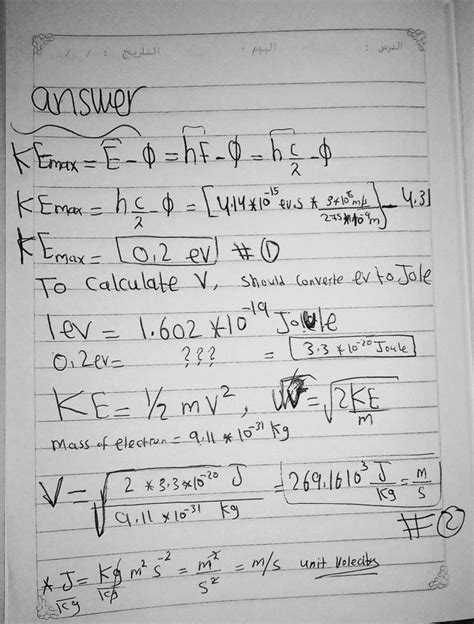 الدرس : اليوم : التاريخ : / /
answer
KEmax = E - Φ = hf - Φ = h c/λ - Φ
KEmax = h c/λ - Φ = [4.14*10^-15 ev.s * 3*10^8 m/s / 275*10^-9 m] - 4.31
KEmax = 0.2 ev # ①
To Calculate V, should converte ev to Jole
1ev = 1.602 *10^-19 Joule
0.2ev = ??? = 3.3 *10^-20 Joule
KE = 1/2 mV², V = √2KE/m
mass of electron = 9.11 * 10^-31 Kg
V = √2 *3.3*10^-20 J / 9.11 *10^-31 Kg = 269.1610³ J/Kg = m/s
# ②
* J/Kg = Kg m² s^-2 / Kg = m²/s² = m/s unit Volecity